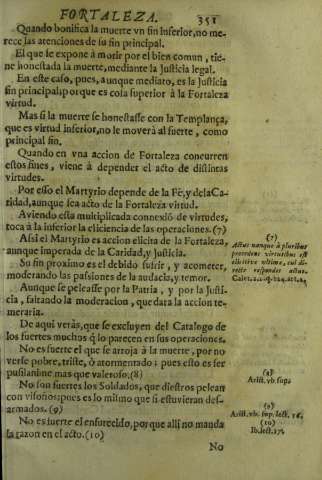 FORTALEZA. 351
Quando bonifica la muerte vn fin inferior, no me-
rece las atenciones de su fin principal.
El que se expone à morir por el bien comun, tie-
ne honestada la muerte, mediante la Justicia legal.
En este caso, pues, aunque mediato, es la Justicia
fin principal; porque es cosa superior à la Fortaleza
virtud.
Mas si la muerte se honestasse con la Templança,
que es virtud inferior, no le moverà al fuerte, como
principal fin.
Quando en vna accion de Fortaleza concurren
estos fines, viene à depender el acto de distintas
virtudes.
Por esso el Martyrio depende de la Fè, y de la Ca-
ridad, aunque sea acto de la Fortaleza virtud.
Aviendo esta multiplicada connexiõ de virtudes,
toca à la inferior la eliciencia de las operaciones. (7)
Assi el Martyrio es accion elicita de la Fortaleza,
aunque imperada de la Caridad, y Justicia.
Su fin proximo es el debido sufrir, y acometer,
moderando las passiones de la audacia, y temor.
Aunque se peleasse por la Patria, y por la Justi-
cia, faltando la moderacion, quedara la accion te-
meraria.
De aqui veràs, que se excluyen del Catalogo de
los fuertes muchos q̃ lo parecen en sus operaciones.
No es fuerte el que se arroja à la muerte, por no
verse pobre, triste, ò atormentado: pues esto es ser
pusilanime mas que valeroso. (8)
No son fuertes los Soldados, que diestros pelean
con visoños: pues es lo mismo que si estuvieran des-
armados. (9)
No es fuerte el enfurecido, porque alli no manda
la razon en el acto. (10)
No
(7)
Actus nanque à pluribus
procedens virtutibus est
elicitivè ultimæ, cui di-
rectè respondet actus.
Caiet. 2. 2.
(8)
Arist. vb. sup.
(9)
Arist. vb. sup. lect. 16.
(10)
Ib. lect. 17.